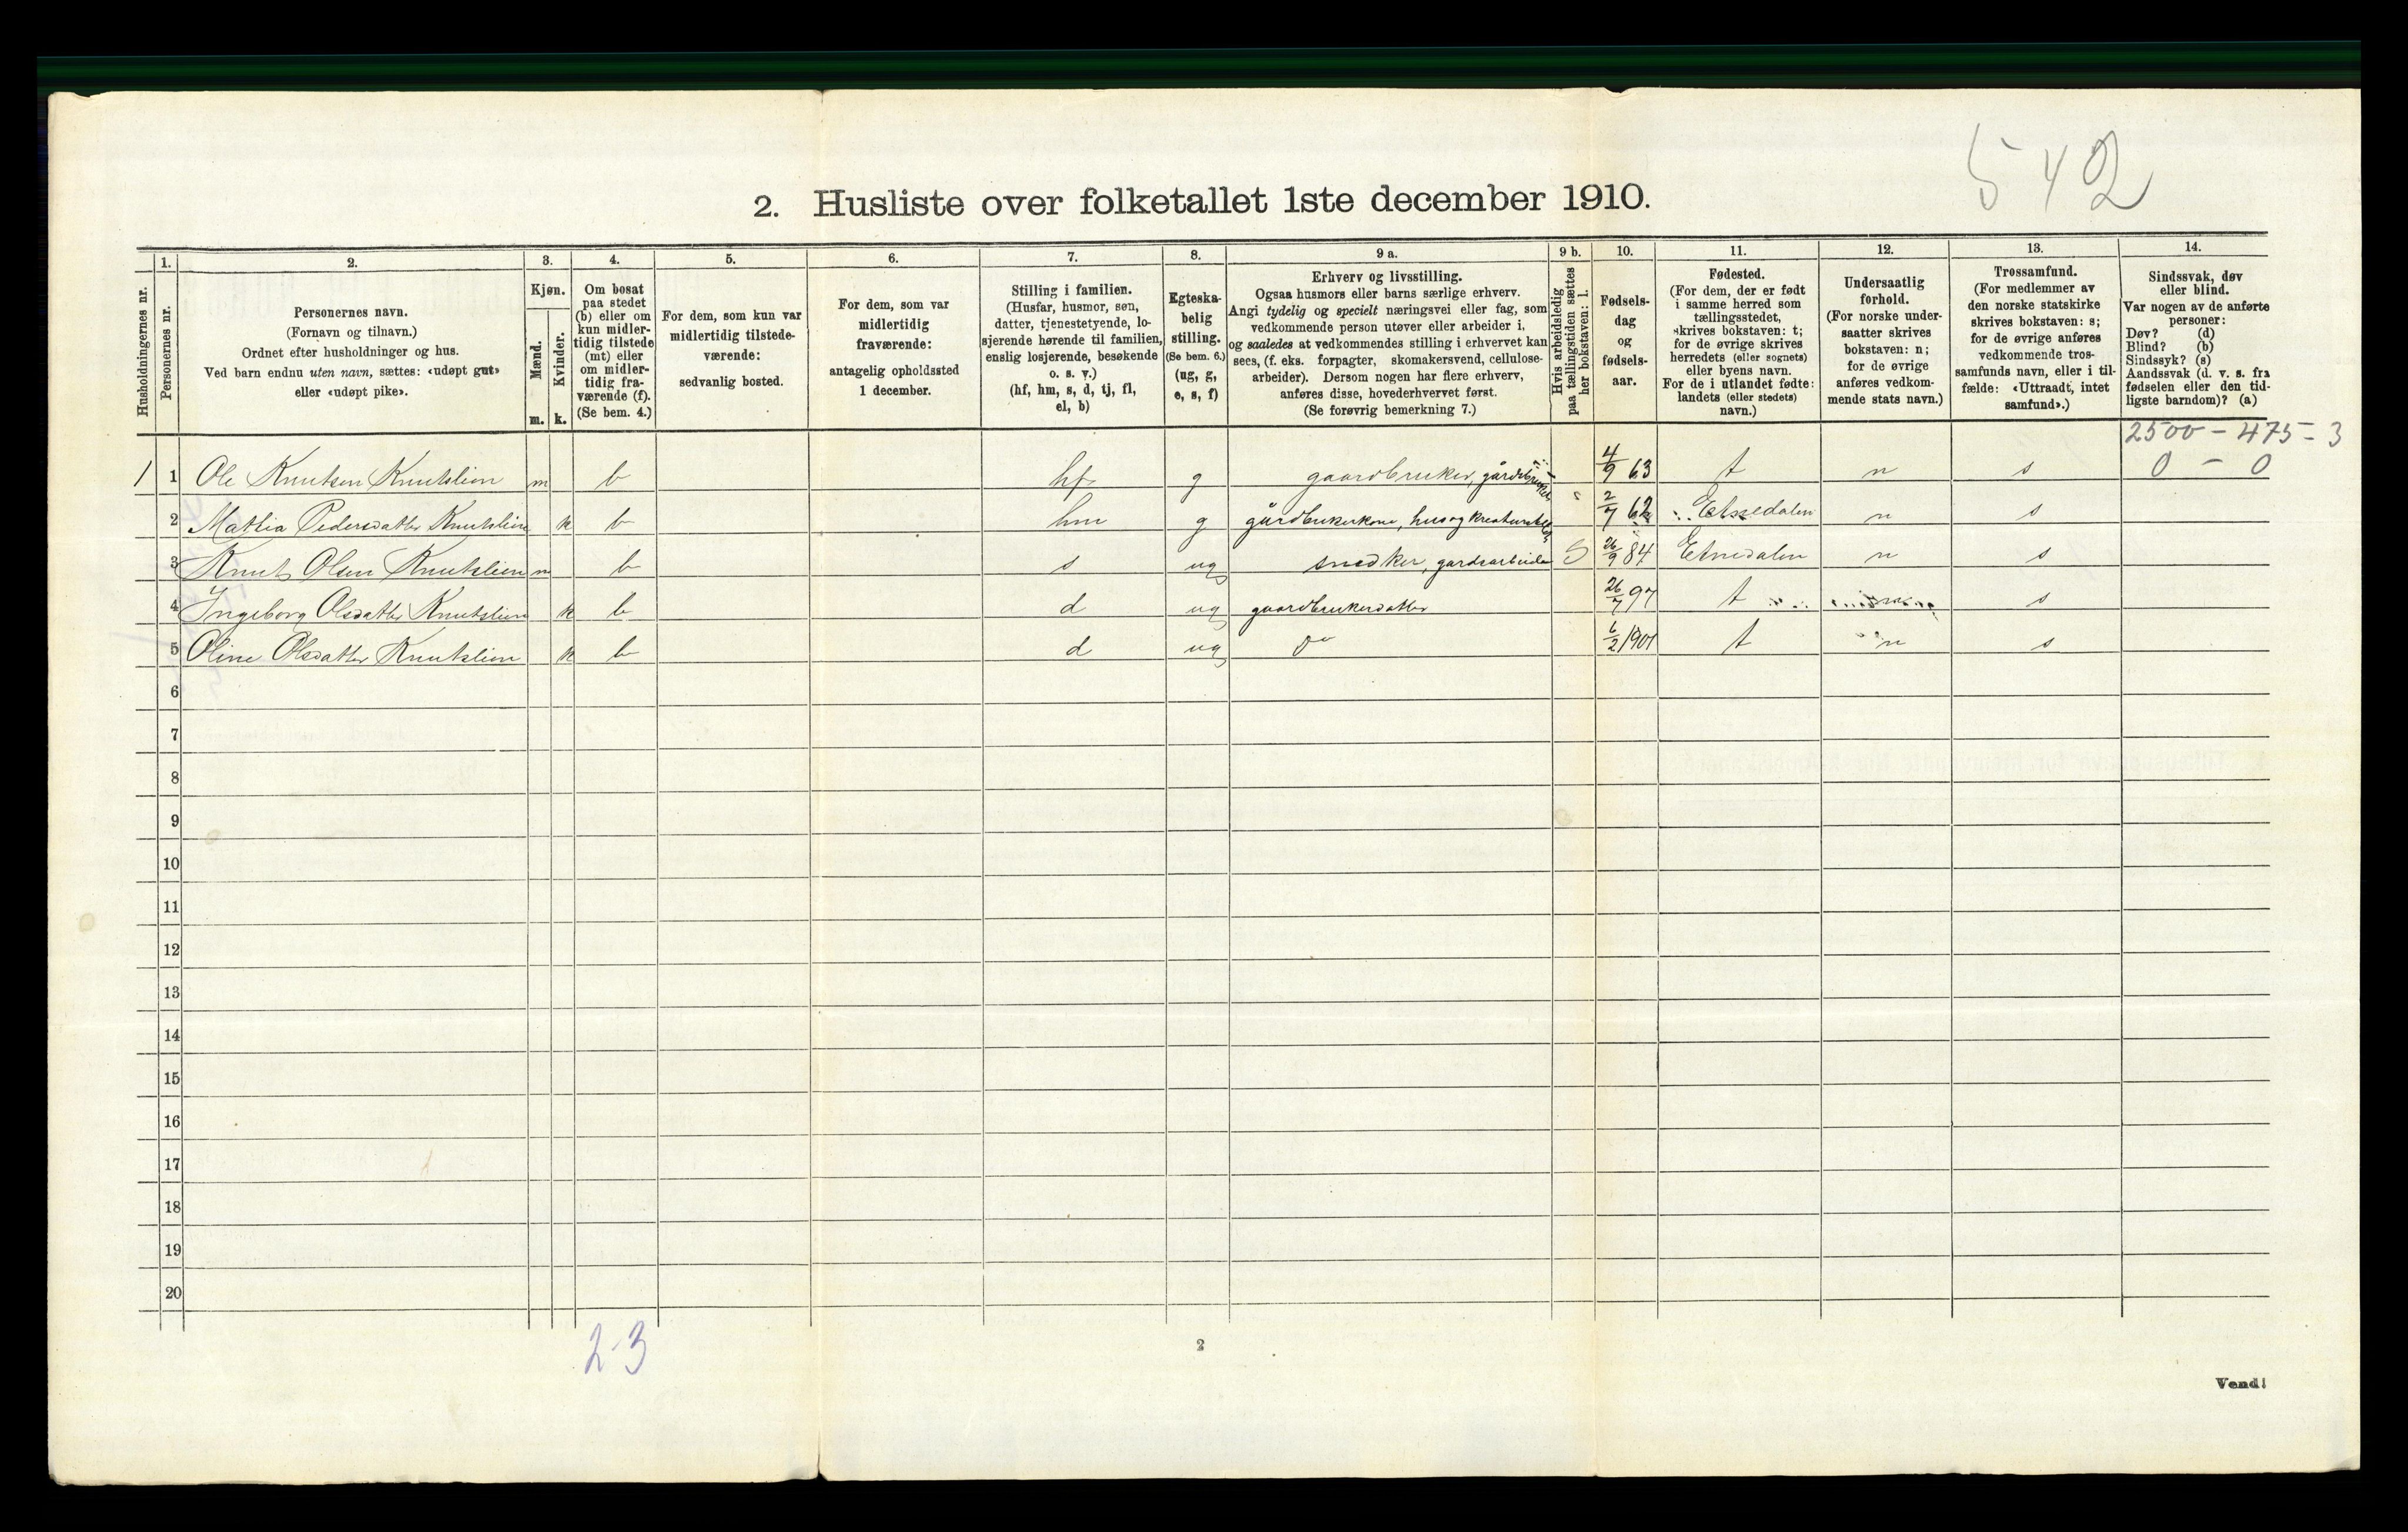 542
2. Husliste over folketallet 1ste december 1910.
Husholdningernes nr.
1.
Personernes nr.
2.
Personernes navn.
(Fornavn og tilnavn.)
Ordnet efter husholdninger og hus.
Ved barn endnu uten navn, sættes: «udøpt gut»
eller «udøpt pike».
3.
Kjøn.
Mænd.
Kvinder.
m. k.
4.
Om bosat
paa stedet
(b) eller om
kun midler-
tidig tilstede
(mt) eller
om midler-
tidig fra-
værende (f).
(Se bem. 4.)
5.
For dem, som kun var
midlertidig tilstede-
værende:
sedvanlig bosted.
6.
For dem, som var
midlertidig
fraværende:
antagelig opholdssted
1 december.
7.
Stilling i familien.
(Husfar, husmor, søn,
datter, tjenestetyende, lo-
sjerende hørende til familien,
enslig losjerende, besøkende
o. s. v.)
(hf, hm, s, d, tj, fl,
el, b)
8.
Egteska-
belig
stilling.
(Se bem. 6.)
(ug, g,
e, s, f)
9 a.
Erhverv og livsstilling.
Ogsaa husmors eller barns særlige erhverv.
Angi tydelig og specielt næringsvei eller fag, som
vedkommende person utøver eller arbeider i,
og saaledes at vedkommendes stilling i erhvervet kan
sees, (f. eks. forpagter, skomakersvend, cellulose-
arbeider). Dersom nogen har flere erhverv,
anføres disse, hovederhvervet først.
(Se forøvrig bemerkning 7.)
9 b.
Hvis arbeidsledig
paa tællingstiden sættes
her bokstaven: l.
10.
Fødsels-
dag
og
fødsels-
aar.
11.
Fødested.
(For dem, der er født
i samme herred som
tællingsstedet,
skrives bokstaven: t;
for de øvrige skrives
herredets (eller sognets)
eller byens navn.
For de i utlandet fødte:
landets (eller stedets)
navn.)
12.
Undersaatlig
forhold.
(For norske under-
saatter skrives
bokstaven: n;
for de øvrige
anføres vedkom-
mende stats navn.)
13.
Trossamfund.
(For medlemmer av
den norske statskirke
skrives bokstaven: s;
for de øvrige anføres
vedkommende tros-
samfunds navn, eller i til-
fælde: «Uttraadt, intet
samfund».)
14.
Sindssvak, døv
eller blind.
Var nogen av de anførte
personer:
Døv? (d)
Blind? (b)
Sindssyk? (s)
Aandssvak (d. v. s. fra
fødselen eller den tid-
ligste barndom)? (a)
2500 - 475 - 3
0 - 0
1 1 Ole Knutsen Knutslien m b hf g gaardbruker, gårdsbruker 4/9 63 t n s
2 Mathia Pedersdatter Knutslien k b hm g gårdbrukerkone, hus og kreaturstell 2/7 62 Etnedalen n s
3 Knut Olsen Knutslien m b s ug snedker, gardsarbeider S 26/9 84 Etnedalen n s
4 Ingeborg Olsdatter Knutslien k b d ug gaardbrukerdatter 26/7 97 t s
5 Oline Olsdatter Knutslien k b d ug do 6/2 1901 t n s
6
7
8
9
10
11
12
13
14
15
16
17
18
19
20
2-3
2
Vend!